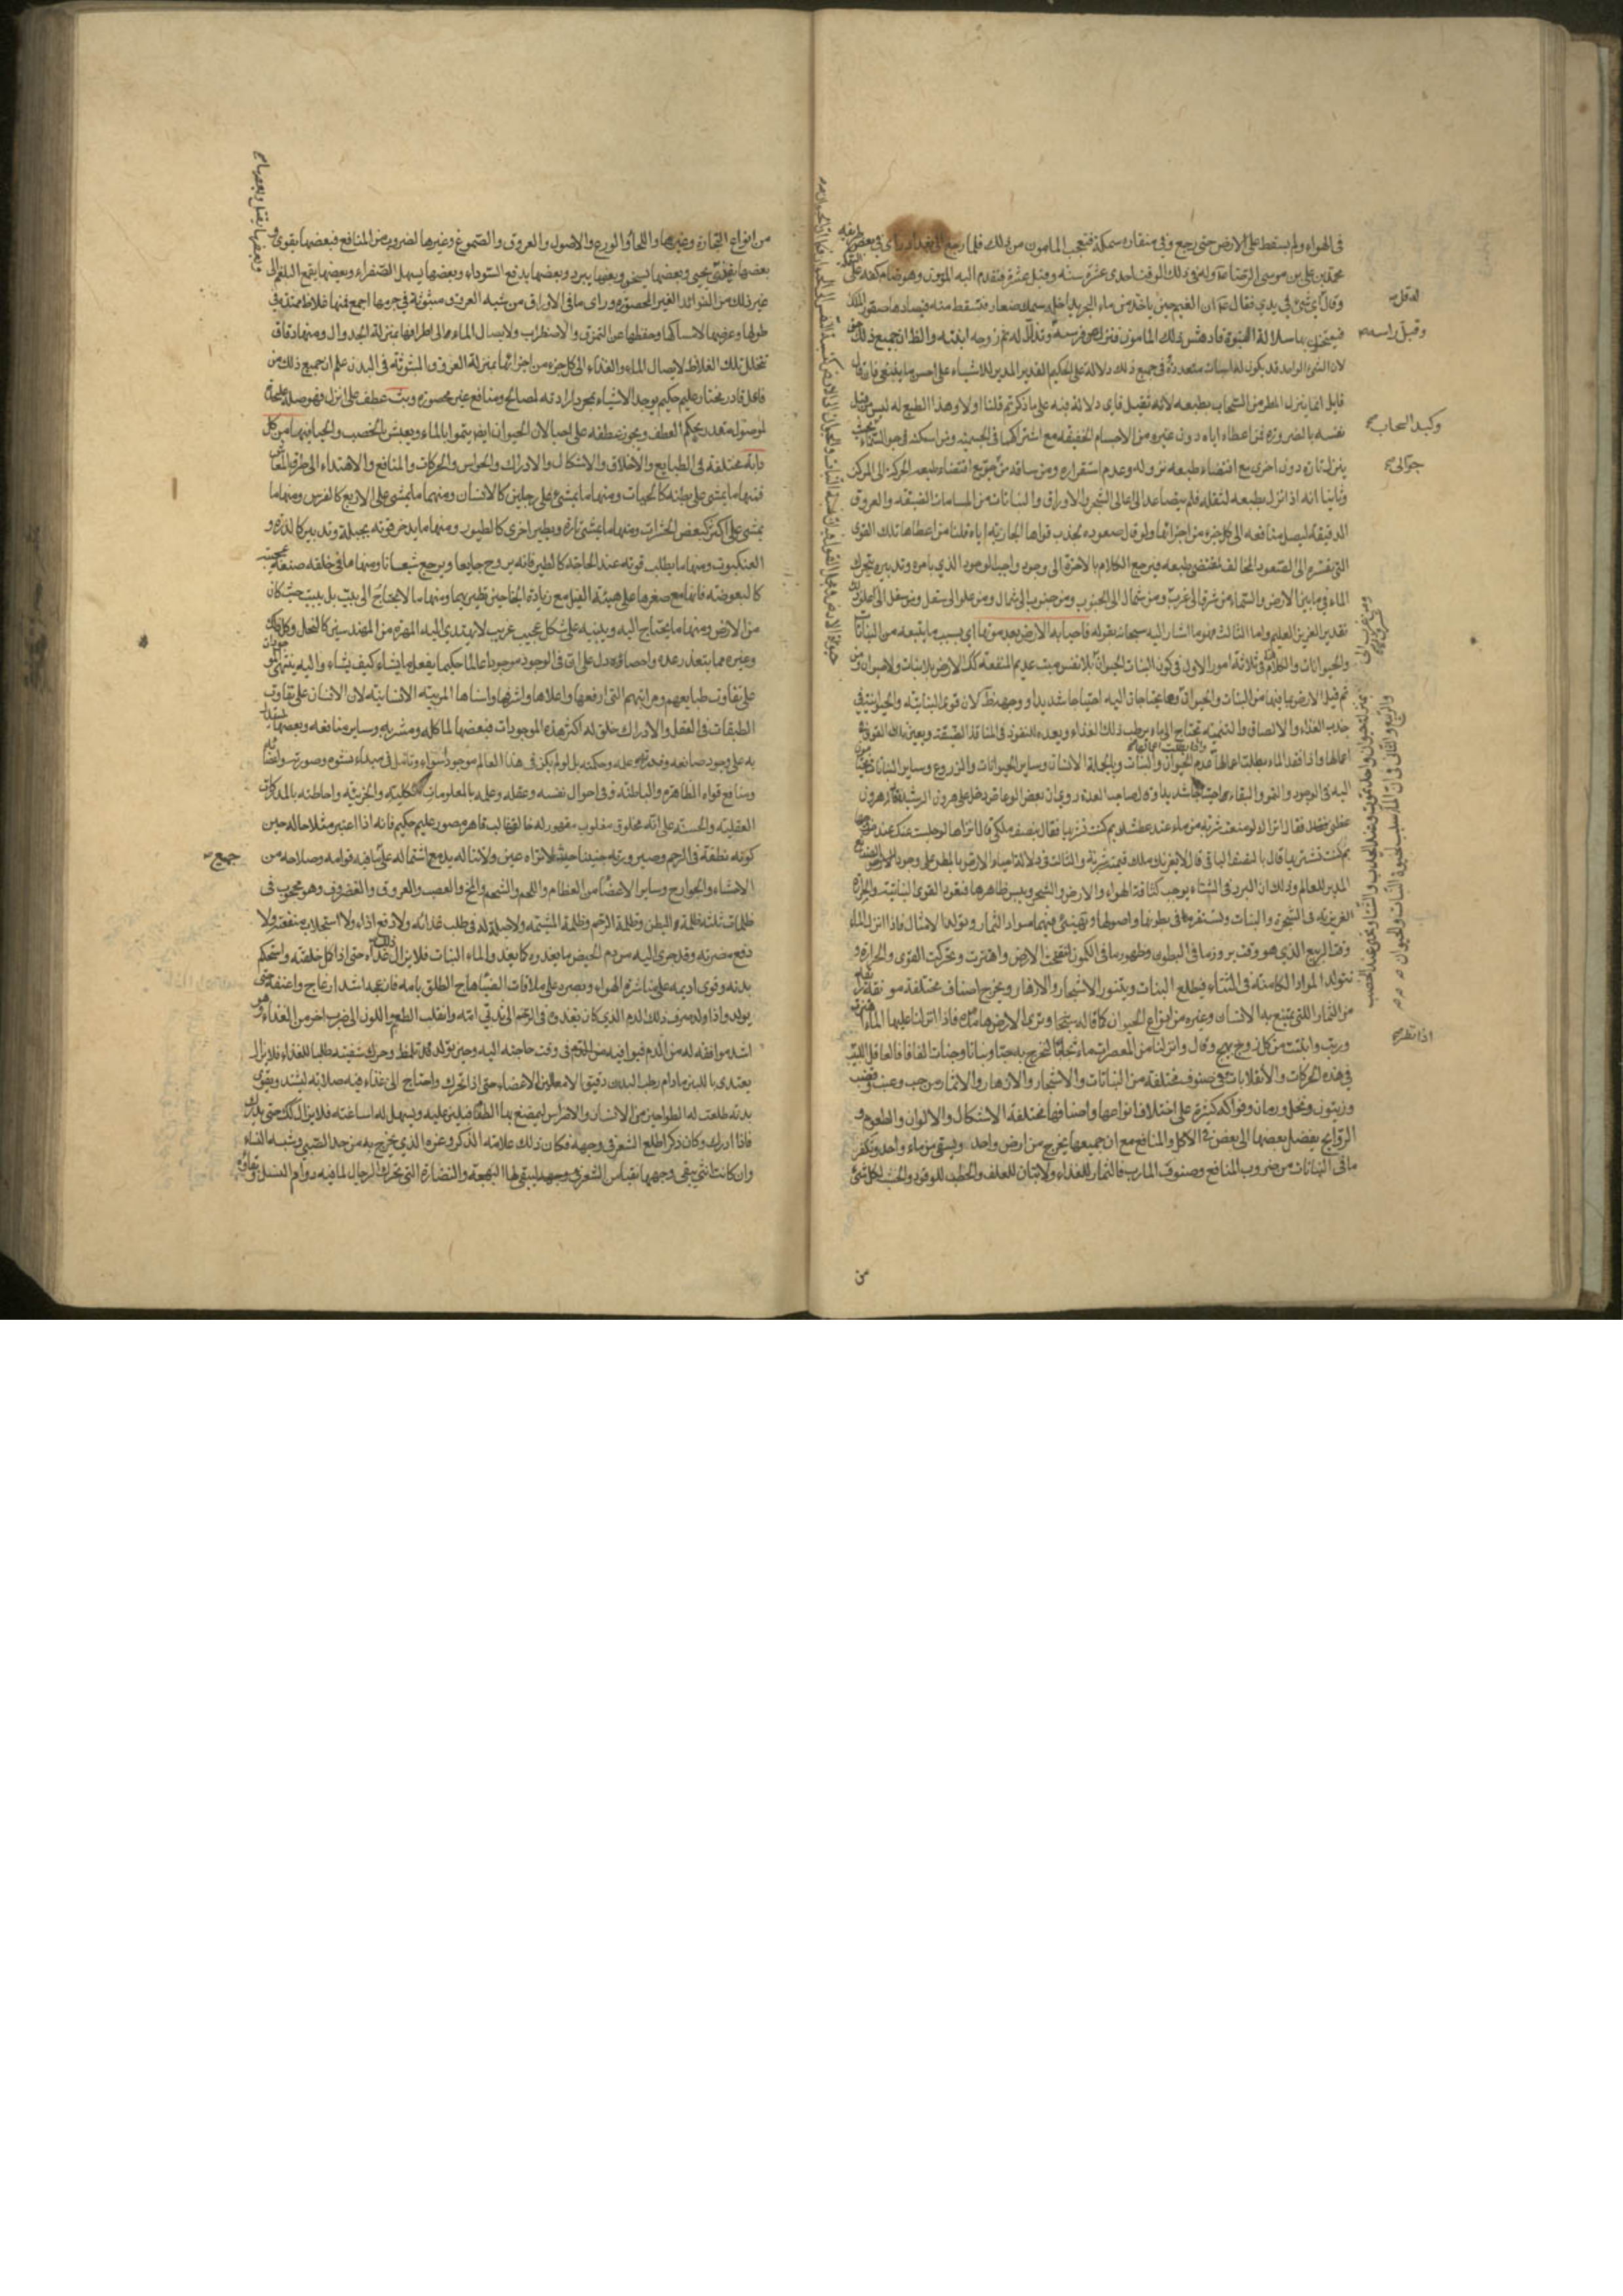 في الهواء ولم يسقط على الارض حتى رجع وفي منقاره سمكة فتعجب المامون من ذلك فلما رجع الى بغداد راى في بعض طريقه
محمد بن علي بن موسى الرضا وله في ذلك الوقت احدى عشرة سنة وقيل عشرة فتقدم اليه المامون وهو ضام كفه على السمكة
وقال اي شئ في يدي فقال ان الغيم حين ياخذ من ماء البحر يداخله سمك صغار فتسقط منه فيصادها صقور الملك
فيمتحنون بها سلالة النبوة فادهش ذلك المامون فنزل عن فرسه وتذلل له ثم زوجه ابنته والظاهر ان جميع ذلك حق
لان الشئ الواحد قد يكون له اسباب متعددة وفي جميع ذلك دلالة على الحكيم القدير المدبر للاشياء على احسن ما ينبغي فان قال
قايل انما ينزل المطر من السحاب بطبيعه لانه ثقيل فاي دلالة فيه على ما ذكرتم قلنا اولا وهذا الطبع له ليس من قبل
نفسه بالضرورة فمن اعطاه اياه دون غيره من الاجسام الخفيفة مع اشتراكهما في الجسمية ومن اسكنه في جو السماء بحيث
ينزل تارة دون اخرى مع اقتضاء طبعه نزوله وعدم استقراره ومن ساقه من موضع الى موضع
وثانيا انه اذا نزل بطبعه لثقله فلم يتصاعد الى اعالي الشجر والاوراق والنباتات من المسامات الضيقة والعروق
الدقيقة ليصل منافعه الى كل جزء من اجزائها ولو قال صعوده لجذب قواها الجاذبة اياه قلنا من اعطاها تلك القوى
التي يقسره الى الصعود المخالف لمقتضى طبعه فيرجع الكلام بالاخرة الى وجود واجب الوجود الذي بامره وتدبيره يتحرك
الماء فيما بين الارض والسماء من شرق الى غرب ومن شمال الى الجنوب ومن جنوب الى شمال ومن علو الى سفل ومن سفل الى علو ذلك
تقدير العزيز العليم واما الثالث فهو ما اشار اليه سبحانه بقوله فاحيا به الارض بعد موتها اي بسبب ما يتبعه من النباتات
والحيوانات والكلام في ثلاثة امور الاول في كون النبات
ثم قيل الارض بما فيها من النبات والحيوان وهما يحتاجان اليه احتياجا شديدا ووجهه ظ لان قوة النباتية والحيوانية في
جذب الغذاء والالصاق والتنمية تحتاج الى ماء يرطب ذلك الغذاء ويعده للنفوذ في المنافذ الضيقة ويعين تلك القوى في
اعمالها واذا فقد الماء بطلت اعمالها عدم الحيوان والنبات وبالجملة الانسان وساير الحيوانات والزروع وساير النباتات محتاجون
اليه في الوجود والنمو والبقاء احتياجا شديدا قال صاحب العدة روي ان بعض الوعاظ دخل على هرون الرشيد فقال هرون
عظني فقال اتراك لو منعت شربة من ماء عند عطشك بم كنت تشتريها فقال بنصف ملكي قال اتراها لو حبست عنك عند خروجها
بم كنت تشتريها قال بالنصف الباقي قال لا يغرنك ملك قيمته شربة والثالث في دلالة احياء الارض بالمطر على وجود الصانع
المدبر للعالم وذلك ان البرد في الشتاء يوجب كثافة الهواء والارض والشجر ويبس ظاهرها فيعود القوى النباتية والحرارة
الغريزية في الشجرة والنبات وتستقر في بطونها واصولها وتهيئ فيهما مواد الثمار وتولد الامثال فاذا انزل الماء
وقت الربيع الذي هو وقت بروز ما في البطون وظهور ما في الكمون انتفخت الارض واهتزت وتحركت القوى والحرارة و
تتولد المواد الكامنة في الشتاء فيطلع النبات ويتنور الاشجار والازهار ويخرج اصناف مختلفة
من الثمار اللتي يتمتع بها الانسان وغيره من انواع الحيوان كما قال سبحانه وترى الارض هامدة فاذا انزلنا عليها الماء اهتزت
وربت وانبتت من كل زوج بهيج وقال وانزلنا من المعصرات ماء ثجاجا لنخرج به حبا ونباتا وجنات الفافا فالعاقل اللبيب
في هذه الحركات والانقلابات في صنوف مختلفة من النباتات والاشجار والازهار والاثمار من حب وعنب وقضب
وزيتون ونخل ورمان وفواكه كثيرة على اختلاف انواعها واصنافها مختلفة الاشكال والالوان والطعوم و
الروايح يفضل بعضها الى بعض في الاكل والمنافع مع ان جميعها يخرج من ارض واحد ويسقى من ماء واحد وتفكر
ما في النباتات من ضروب المنافع وصنوف المارب فالثمار للغذاء والاتبان للعلف والحطب للوقود والخشب لكل شئ
من
وقبل راسه
وكبد السحاب
حوالى
اذا نظر
من انواع التجارة وغيرها واللحاء والورق والاصول والعروق والصموغ وغيرها لضروب من المنافع فبعضها يقوي و
بعضها يغذي وبعضها يسخن وبعضها يبرد وبعضها يدفع السوداء وبعضها يسهل الصفراء وبعضها يقمع البلغم الى
غير ذلك من الفوائد الغير المحصورة وراى ما في الاوراق من شبه العروق مبثوثة في جرمها اجمع فمنها غلاظ ممتدة في
طولها وعرضها لامساكها وحفظها عن التمزق والاضطراب ولايصال الماء الى اطرافها بمنزلة الجداول ومنها دقاق
تتخلل تلك الغلاظ لايصال الماء والغذاء الى كل جزء من اجزائها بمنزلة العروق المبثوثة في البدن علم ان جميع ذلك من
فاعل قادر مختار عليم حكيم يوجد الاشياء بمجرد ارادته لمصالح ومنافع غير محصورة وبث عطف على انزل فهو صلة على حدة
لموصول مقدر بحكم العطف ويجوز عطفه على احيا لان الحيوان ايضا ينمو بالماء ويعيش بالخصب والحيا فيها من كل
دابة مختلفة في الطبايع والاخلاق والاشكال والادراك والحواس والحركات والمنافع والاهتداء الى طرق المعاش
فمنها ما يمشي على بطنه كالحيات ومنهما ما يمشي على رجلين كالانسان ومنهما ما يمشي على الاربع كالفرس ومنهما ما
يمشي على اكثر كبعض الحشرات ومنها ما يمشي تارة ويطير اخرى كالطيور ومنهما ما يدخر قوته بحيلة وتدبير كالذرة و
العنكبوت ومنها ما يطلب قوته عند الحاجة كالطير فانه يروح جايعا ويرجع شبعانا ومنها ما في خلقه صنعة عجيبة
كالبعوضة فانها مع صغرها على هيئة الفيل مع زيادة الجناحين تطير بهما ومنها ما لا يحتاج الى بيت بل يبيت حيث كان
من الارض ومنها ما يحتاج اليه ويبنيه على شكل عجيب غريب لا يهتدي اليه المهرة من المهندسين كالنحل وكل ذلك
وغيره مما يتعذر عده واحصاؤه دل على ان في الوجود موجودا عالما حكيما يفعل ما يشاء كيف يشاء واليه ينتهي
على تفاوت طبايعهم ومراتبهم التي ارفعها واعلاها واشرفها واسناها المرتبة الانسانية لان الانسان على تفاوت
الطبقات في العقل والادراك خلق له اكثر هذه الموجودات فبعضها لماكله ومشربه وساير منافعه وبعضها ليستدل
به على وجود صانعه وقدرته وعلمه وحكمته بل لو لم يكن في هذا العالم موجود سواه وتامل في مبداء نشوه وصورته واعضائه
ومنافع قواه الظاهرة والباطنة وفي احوال نفسه وعقله وعلمه بالمعلومات الكلية والجزئية واحاطته بالمدركات
العقلية والحسية علم انه مخلوق مغلوب مقهور له خالق غالب قاهر مصور عليم حكيم فانه اذا اعتبر مثلا حاله حين
كونه نطفة في الرحم وصيرورته جنينا حيث لا تراه عين ولا تناله يد مع اشتماله على ما فيه قوامه وصلاحه من
الاحشاء والجوارح وساير الاعضاء من العظام واللحم والشحم والمخ والعصب والعروق والغضروف وهو محجوب في
ظلمات ثلثة ظلمة البطن وظلمة الرحم وظلمة المشيمة ولا حيلة له في طلب غذائه ولا دفع اذاه ولا استجلاب منفعته ولا
دفع مضرته وقد جرى اليه من دم الحيض ما يغذوه كما يغذو الماء النبات فلا يزال ذلك غذاه حتى اذا كمل خلقته واستحكم
بدنه وقوي اديمه على مباشرة الهواء وبصره على ملاقات الضياء هاج الطلق بامه فازعجه اشد ازعاج واعنفه حتى
يولد واذا ولد صرف ذلك الدم الذي كان يغذوه في الرحم الى ثدي امه وانقلب الطعم واللون الى ضرب اخر من الغذاء وهو
اشد موافقة له من الدم فيوافيه في وقت حاجته اليه وحين تولد قد تلمظ وحرك شفتيه طلبا للغذاء فلا يزال
يغتذي باللبن مادام رطب البدن دقيق الامعاء لين الاعضاء حتى اذا تحرك واحتاج الى غذاء فيه صلابة ليشتد ويقوى
بدنه طلعت له الطواحن من الاسنان والاضراس ليمضغ بها الطعام فيلين عليه ويسهل له اساغته فلا يزال كذلك حتى يدرك
فاذا ادرك وكان ذكرا طلع الشعر في وجهه فكان ذلك علامة الذكر وعزه الذي يخرج به من حد الصبي وشبه النساء
وان كانت انثى يبقى وجهها نقيا من الشعر ليبقى لها البهجة والنضارة التي تحرك الرجال لما فيه دوام النسل وبقاؤه
جميع